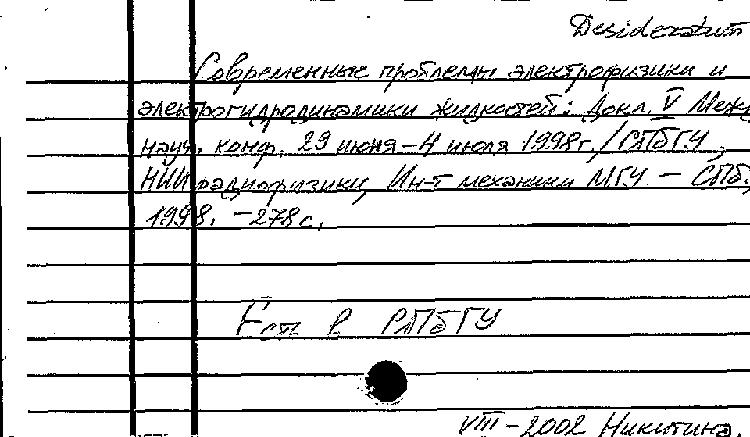 Desideratum
Современные проблемы электрофизики и
электрогидродинамики жидкостей: Докл. V Межд
науч. конф. 29 июня – 4 июля 1998г. / СПбГУ,
НИИ радиофизики, Ин-т механики МГУ – СПб,
1998. – 278 с.
Есть в СПбГУ
VIII – 2002 Никитина.